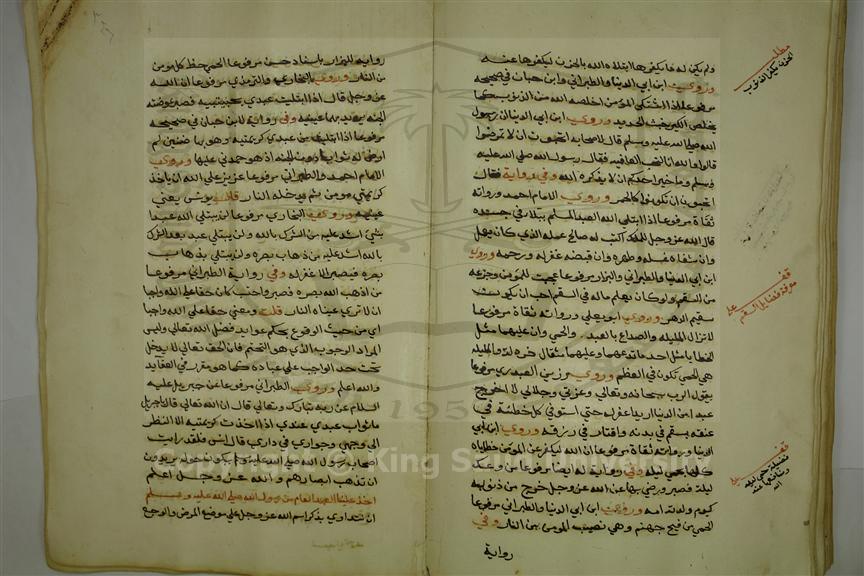 ولم يكن له ما يكفرها ابتلاه الله بالحزن ليكفرها عنه
وروى ابن ابي الدنيا والطبراني وابن حبان في صحيحه
مرفوعا اذا اشتكى المؤمن اخلصه الله من الذنوب كما
يخلص الكير خبث الحديد وروى ابن ابي الدنيا ان رسول
الله صلى الله عليه وسلم قال لاصحابه اتحبون ان لا تمرضوا
قالوا والله انا لنحب العافية فقال رسول الله صلى الله عليه
وسلم وما خير احدكم ان لا يذكره الله وفي رواية فقال
اتحبون ان تكونوا كالحمر وروى الامام احمد ورواته
ثقاة مرفوعا اذا ابتلى الله العبد المسلم ببلاء في جسده
قال الله عز وجل للملك اكتب له صالح عمله الذي كان يعمل
وان شفاه غسله وطهره وان قبضه غفر له ورحمه وروى
ابن ابي الدنيا والطبراني والبزار مرفوعا عجبت للمؤمن وجزعه
من السقم ولو كان يعلم ماله في السقم احب ان يكون
سقيم الدهر وروى ابو يعلى ورواته ثقاة مرفوعا
لا تزال المليلة والصداع بالعبد والحمى وان عليهما مثل
الخطايا مثل احد فما تدعهما وعليهما مثقال خردلة والمليلة
هي الحمى تكون في العظم وروى رزين العبدري مرفوعا
يقول الرب سبحانه وتعالى وعزتي وجلالي لا اخرج
عبدا من الدنيا اريد اغفر له حتى استوفي كل خطيئة في
عنقه بسقم في بدنه واقتار في رزقه وروى ابن ابي
الدنيا ورواته ثقاة مرفوعا ان الله ليكفر عن المؤمن خطاياه
كلها بحمى ليلة وفي رواية له ايضا مرفوعا من وعك
ليلة فصبر ورضي بها عن الله عز وجل خرج من ذنوبه
كيوم ولدته امه وروى ابن ابي الدنيا والطبراني مرفوعا
الحمى من فيح جهنم وهي نصيب المؤمن من النار وفي
رواية
مطلب
الحزن يكفر الذنوب
قف على
فضايل السقم
قف على
فضيلة حمى ليلة
رواية للبزار باسناد حسن مرفوعا الحمى حظ كل مومن
من النار وروى البخاري والترمذي مرفوعا ان الله
عز وجل قال اذا ابتليت عبدي بحبيبتيه فصبر عوضته
الجنة يريد بهما عينيه وفي رواية لابن حبان في صحيحه
مرفوعا اذا ابتليت من عبدي كريمتيه وهو بهما ضنين لم
ارض له ثوابا دون الجنة اذا هو حمدني عليها وروى
الامام احمد والطبراني مرفوعا عزيز على الله ان ياخذ
كريمتي مومن ثم يدخله النار قال يونس يعني
عينيه وروى البخاري مرفوعا لن يبتلى الله عبدا
بشي اشد عليه من الشرك بالله ولن يبتلى عبد بعد الشرك
بالله اشد عليه من ذهاب بصره ولن يبتلى بذهاب
بصره فيصبر الا غفر له وفي رواية الطبراني مرفوعا
من اذهب الله بصره فصبر واحتسب كان حقا على الله واجبا
ان لا ترى عيناه النار قلت ومعنى حقا على الله واجبا
اي من حيث الوقوع بحكم عوايد فضل الله تعالى وليس
المراد الوجوب الذي هو التحتم فان الحق تعالى لا يدخل
تحت حد الواجب على عباده كما هو مقرر في العقايد
والله اعلم وروى الطبراني مرفوعا عن جبريل عليه
السلام عن ربه تبارك وتعالى قال ان الله تعالى قال يا جبريل
ما ثواب عبدي عندي اذا اخذت كريمتيه الا النظر
الى وجهي وجواري في داري قال انس فلقد رايت
اصحاب رسول الله صلى الله عليه وسلم يبكون حوله يريدون
ان تذهب ابصارهم والله عز وجل اعلم
اخذ علينا العهد العام من رسول الله صلى الله عليه وسلم
ان نتداوى بذكر اسم الله عز وجل على موضع المرض والوجع